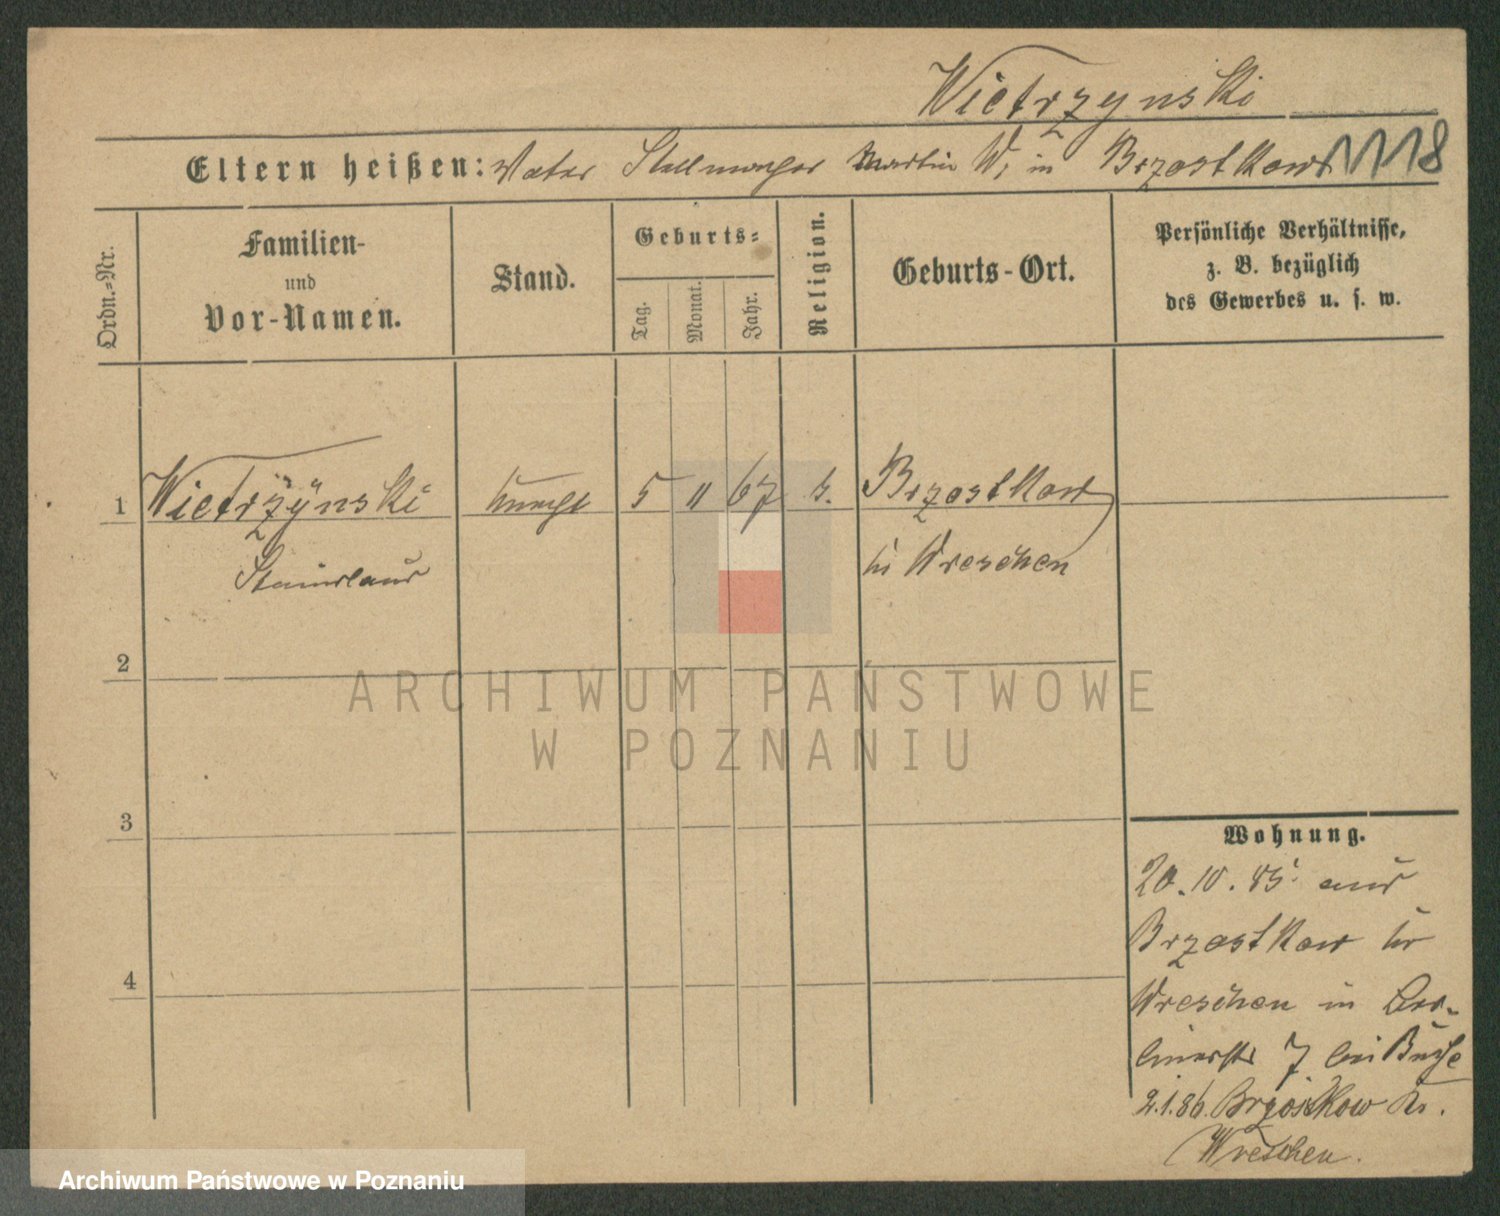 Wietrzynski
Eltern heißen: Vater Stellmacher Martin W. in Brzostkowo 1118
Ordn.-Nr.
Familien-
und
Vor-Namen.
Stand.
Geburts-
Tag.
Monat.
Jahr.
Religion.
Geburts-Ort.
Persönliche Verhältnisse,
z. B. bezüglich
des Gewerbes u. s. w.
1 Wietrzÿnski 5 11 67 k. Brzostkow
Stanislaus Kr Wreschen
2
3
4
Wohnung.
20.10.85. aus
Brzostkow Kr
Wreschen in Ber-
linerstr 7 bei
2.1.86. Brzostkow Kr.
Wreschen.
ARCHIWUM PAŃSTWOWE
W POZNANIU
Archiwum Państwowe w Poznaniu